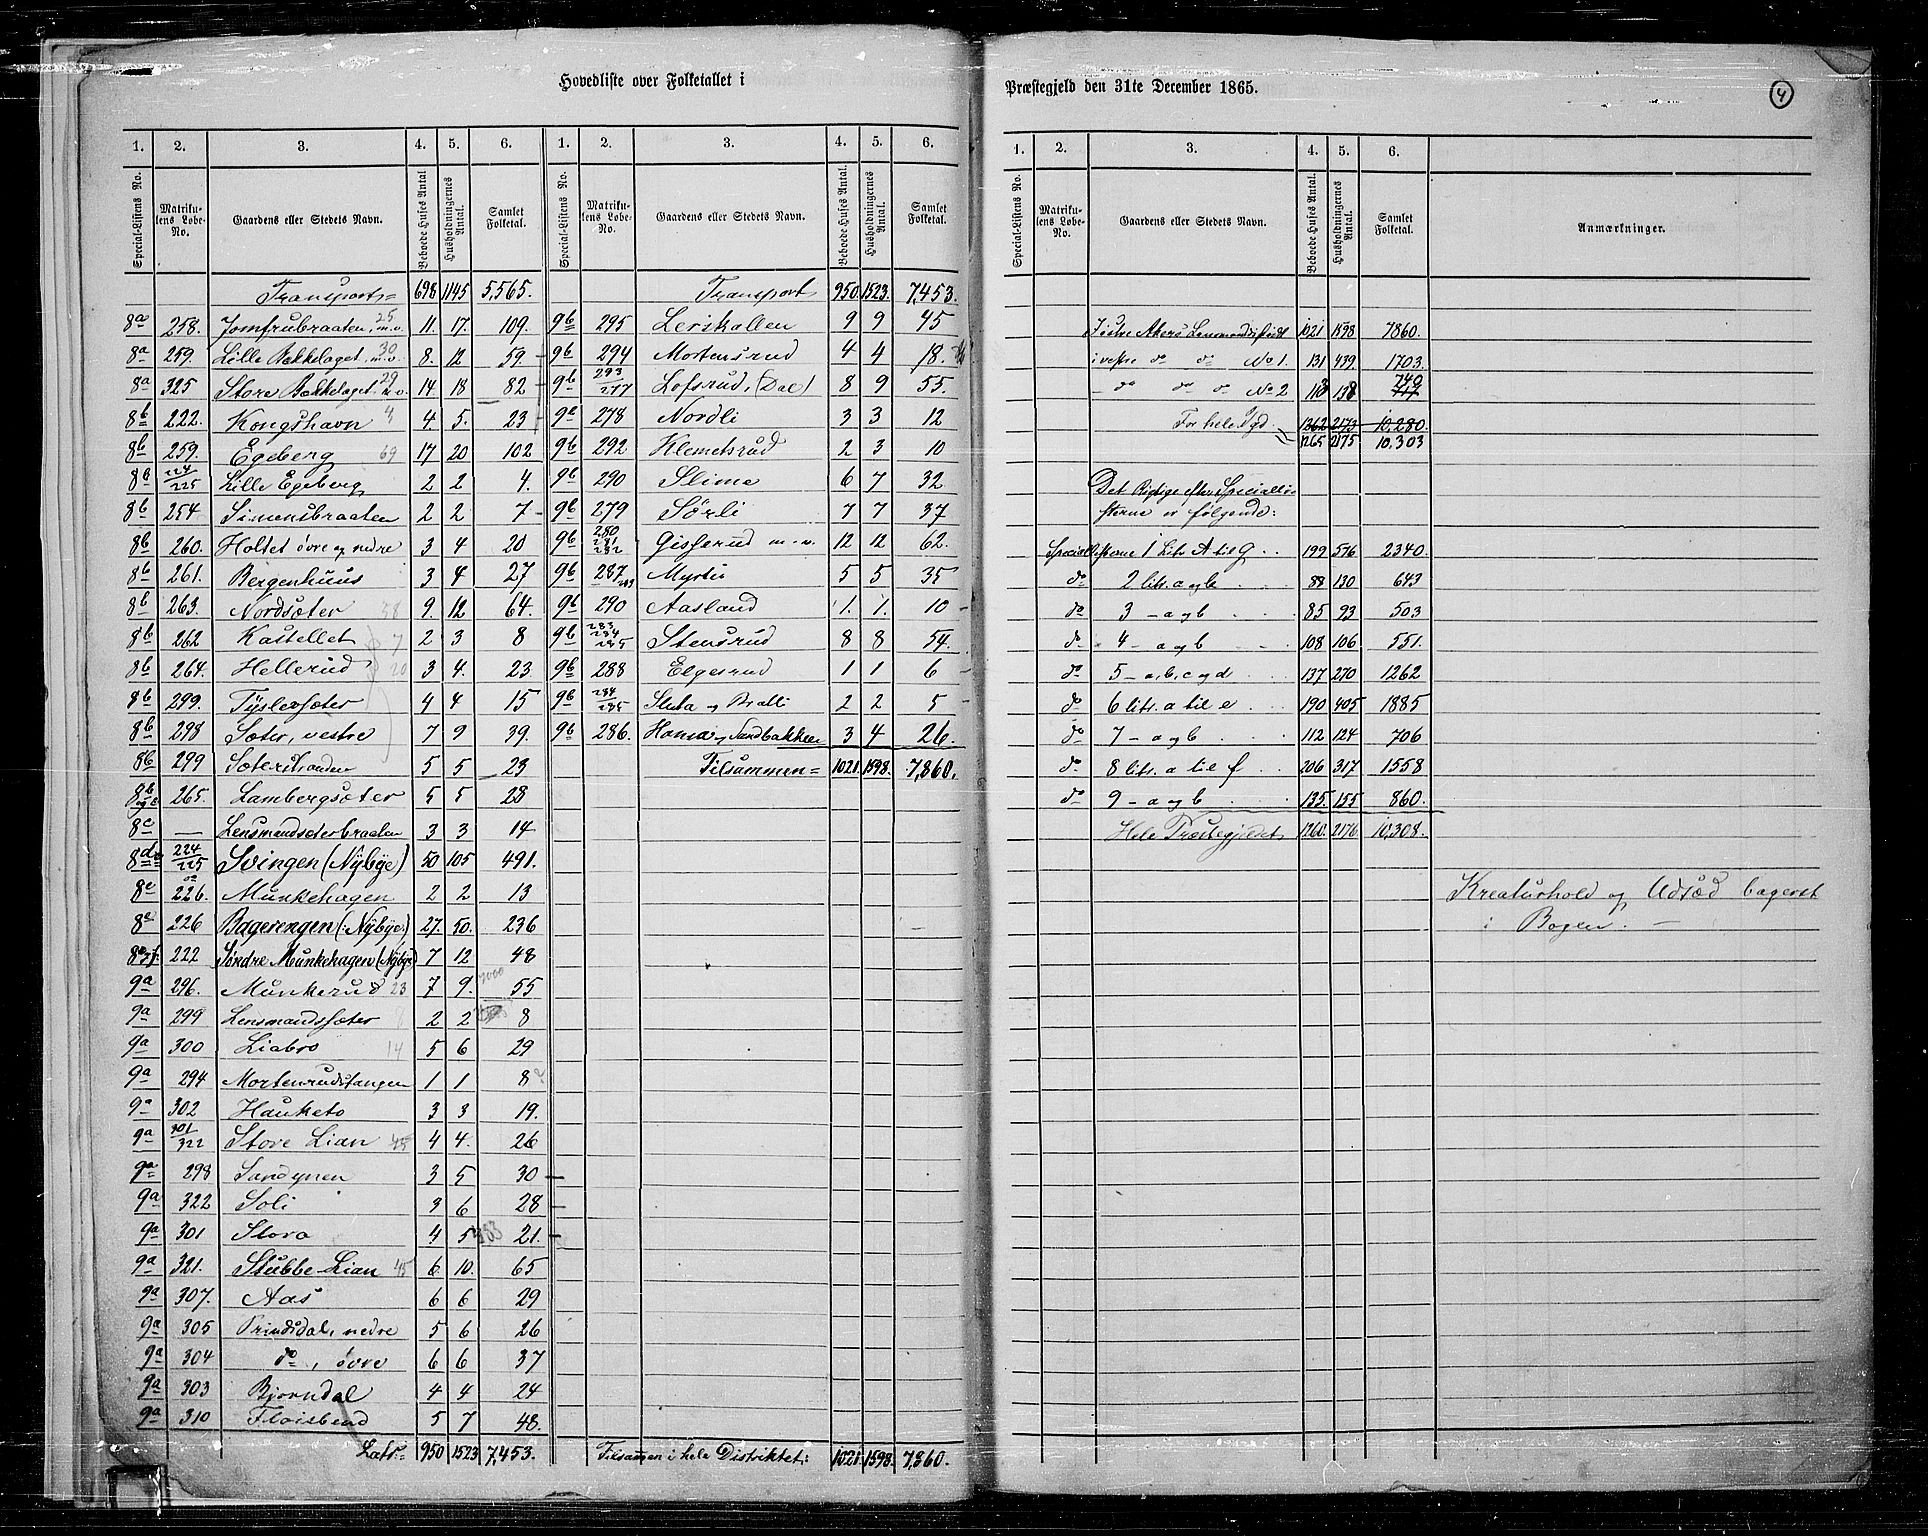 Hovedliste over Folketallet i
1. 2. 3. 4. 5. 6. 1. 2. 3. 4. 5. 6.
Special-Listens No. Matrikulens Løbe-No. Gaardens eller Stedets Navn. Beboede Huses Antal Husholdningernes Antal. Samlet Folketal. Special-Listens No. Matrikulens Løbe-No. Gaardens eller Stedets Navn. Beboede Huses Antal. Husholdningernes Antal. Samlet Folketal.
Transport= 698 1145 5,565.
8a 258. Jomfrubraaten, m.v. 25 11. 17. 109.
8a 259. Lille Bækkelaget, m.v. 30 8. 12 59
8a 325 Store Bækkelaget, m.v. 29 14 18 82
8b 222. Kongshavn 4 4 5. 23
8b 259. Egeberg 69 17 20 102
8b 224/225 Lille Egeberg 2 2 4.
8b 254 Simensbraaten 2 2 7
8b 260. Holtet övre og nedre 3 4 20
8b 261. Bergenhuus 3 4 27
8b 263. Nordsæter 58 9. 12 64.
8b 262 Kastellet 7 2 3 8
8b 264. Hellerud 20 3 4. 23.
8b 299. Tyslersæter 4 4 15
8b 298 Sæter, vestre 7 9 39.
8b 299 Sæterstranden 5 5 23
8b og c 265. Lambergsæter 5 5 28
8c — Lensmandsæterbraaten 3 3 14
8d 224/225 Svingen (Nybye) 50 105 491.
8e 226. Munkehagen 2 2 13
8e 226 Bagerengen (:Nybye:) 27. 50. 236
8e,f 222 Söndre Munkehagen (Nybye) 7 12 48
9a 296. Munkerud 23 7 9. 55
9a 299 Lensmandssæter 8 2 2 8
9a 300 Liabro 14 5 6 29
9a 294 Mortenrudstangen 1 1 8
9a 302 Hauketo 3 3 19.
9a 301/322 Store Lian 45 4 4. 26
9a 298 Sandynen 3 5 30
9a 322 Soli 3 6 28
9a 301 Stora 4 5 21.
9a 321. Stubbe-Lian 45 6. 10. 65
9a 307. Aas 6 6 29
9a 305 Prindsdal, nedre 5 6 26
9a 304 do, övre 6 6 37
9a 303 Bjorndal 4 4 24
9a 310 Floisbend 5 7 48.
Lats= 950 1523 7,453.
Transport 950. 1523. 7,453.
9b 295 Lerskallen 9 9 45
9b 294 Mortensrud 4 4 18.
9b 293/277 Lofsrud, (Dal) 8 9 55.
9a 278 Nordli 3 3 12
9b 292 Klemetsrud 2 3 10
9b 290 Slime 6 7 32
9b 279 Sörli 7 7 37
9b 280 281 282 Gisserud m. v. 12 12 62.
9b 287 Myrer 5 5 35
9b 290 Aasland 1. 1. 10
9b 283 284 285 Stensrud 8 8 54.
9b 288 Elgesrud 1 1 6
9b 284/285 Sluta og Bratli 2 2 5
9b 286. Homa og Sandbakken 3 4 26.
Tilsammen= 1021. 1598. 7,860.
Tilsammen i hele Distriktet: 1021. 1598. 7,860.
Præstegjeld den 31te December 1865.
4
1. 2. 3. 4. 5. 6.
Special-Listens No. Matrikulens Løbe-No. Gaardens eller Stedets Navn. Beboede Huses Antal. Husholdningernes Antal. Samlet Folketal. Anmærkninger.
I östre Akers Lensmandsdistrikt 1021 1598 7860.
i vestre do do No 1. 131 439. 1703.
- do do do No 2 113 138 740 717
For hele Pgd 1262 2173 10,280.
1265 2175 10,303
Det Rigtige efter Speciallisterne er følgende:
Speciallisterne 1 Litr A til G 199 576 2340.
do 2 litr. a og b 88 130 643
do 3 - a og b 85 93 503
do 4 - a og b 108 106 551.
do 5 - a, b, c og d 137 270 1262
do 6 litr. a til e 190 405 1885
do 7 - a og b 112 124 706
do 8 litr. a til f 206 317 1558
do 9 - a og b 135. 155 860.
Hele Præstegjeldet 1260. 2176 10,308.
Kreaturhold og Udsæd bagerst
i Bogen. —